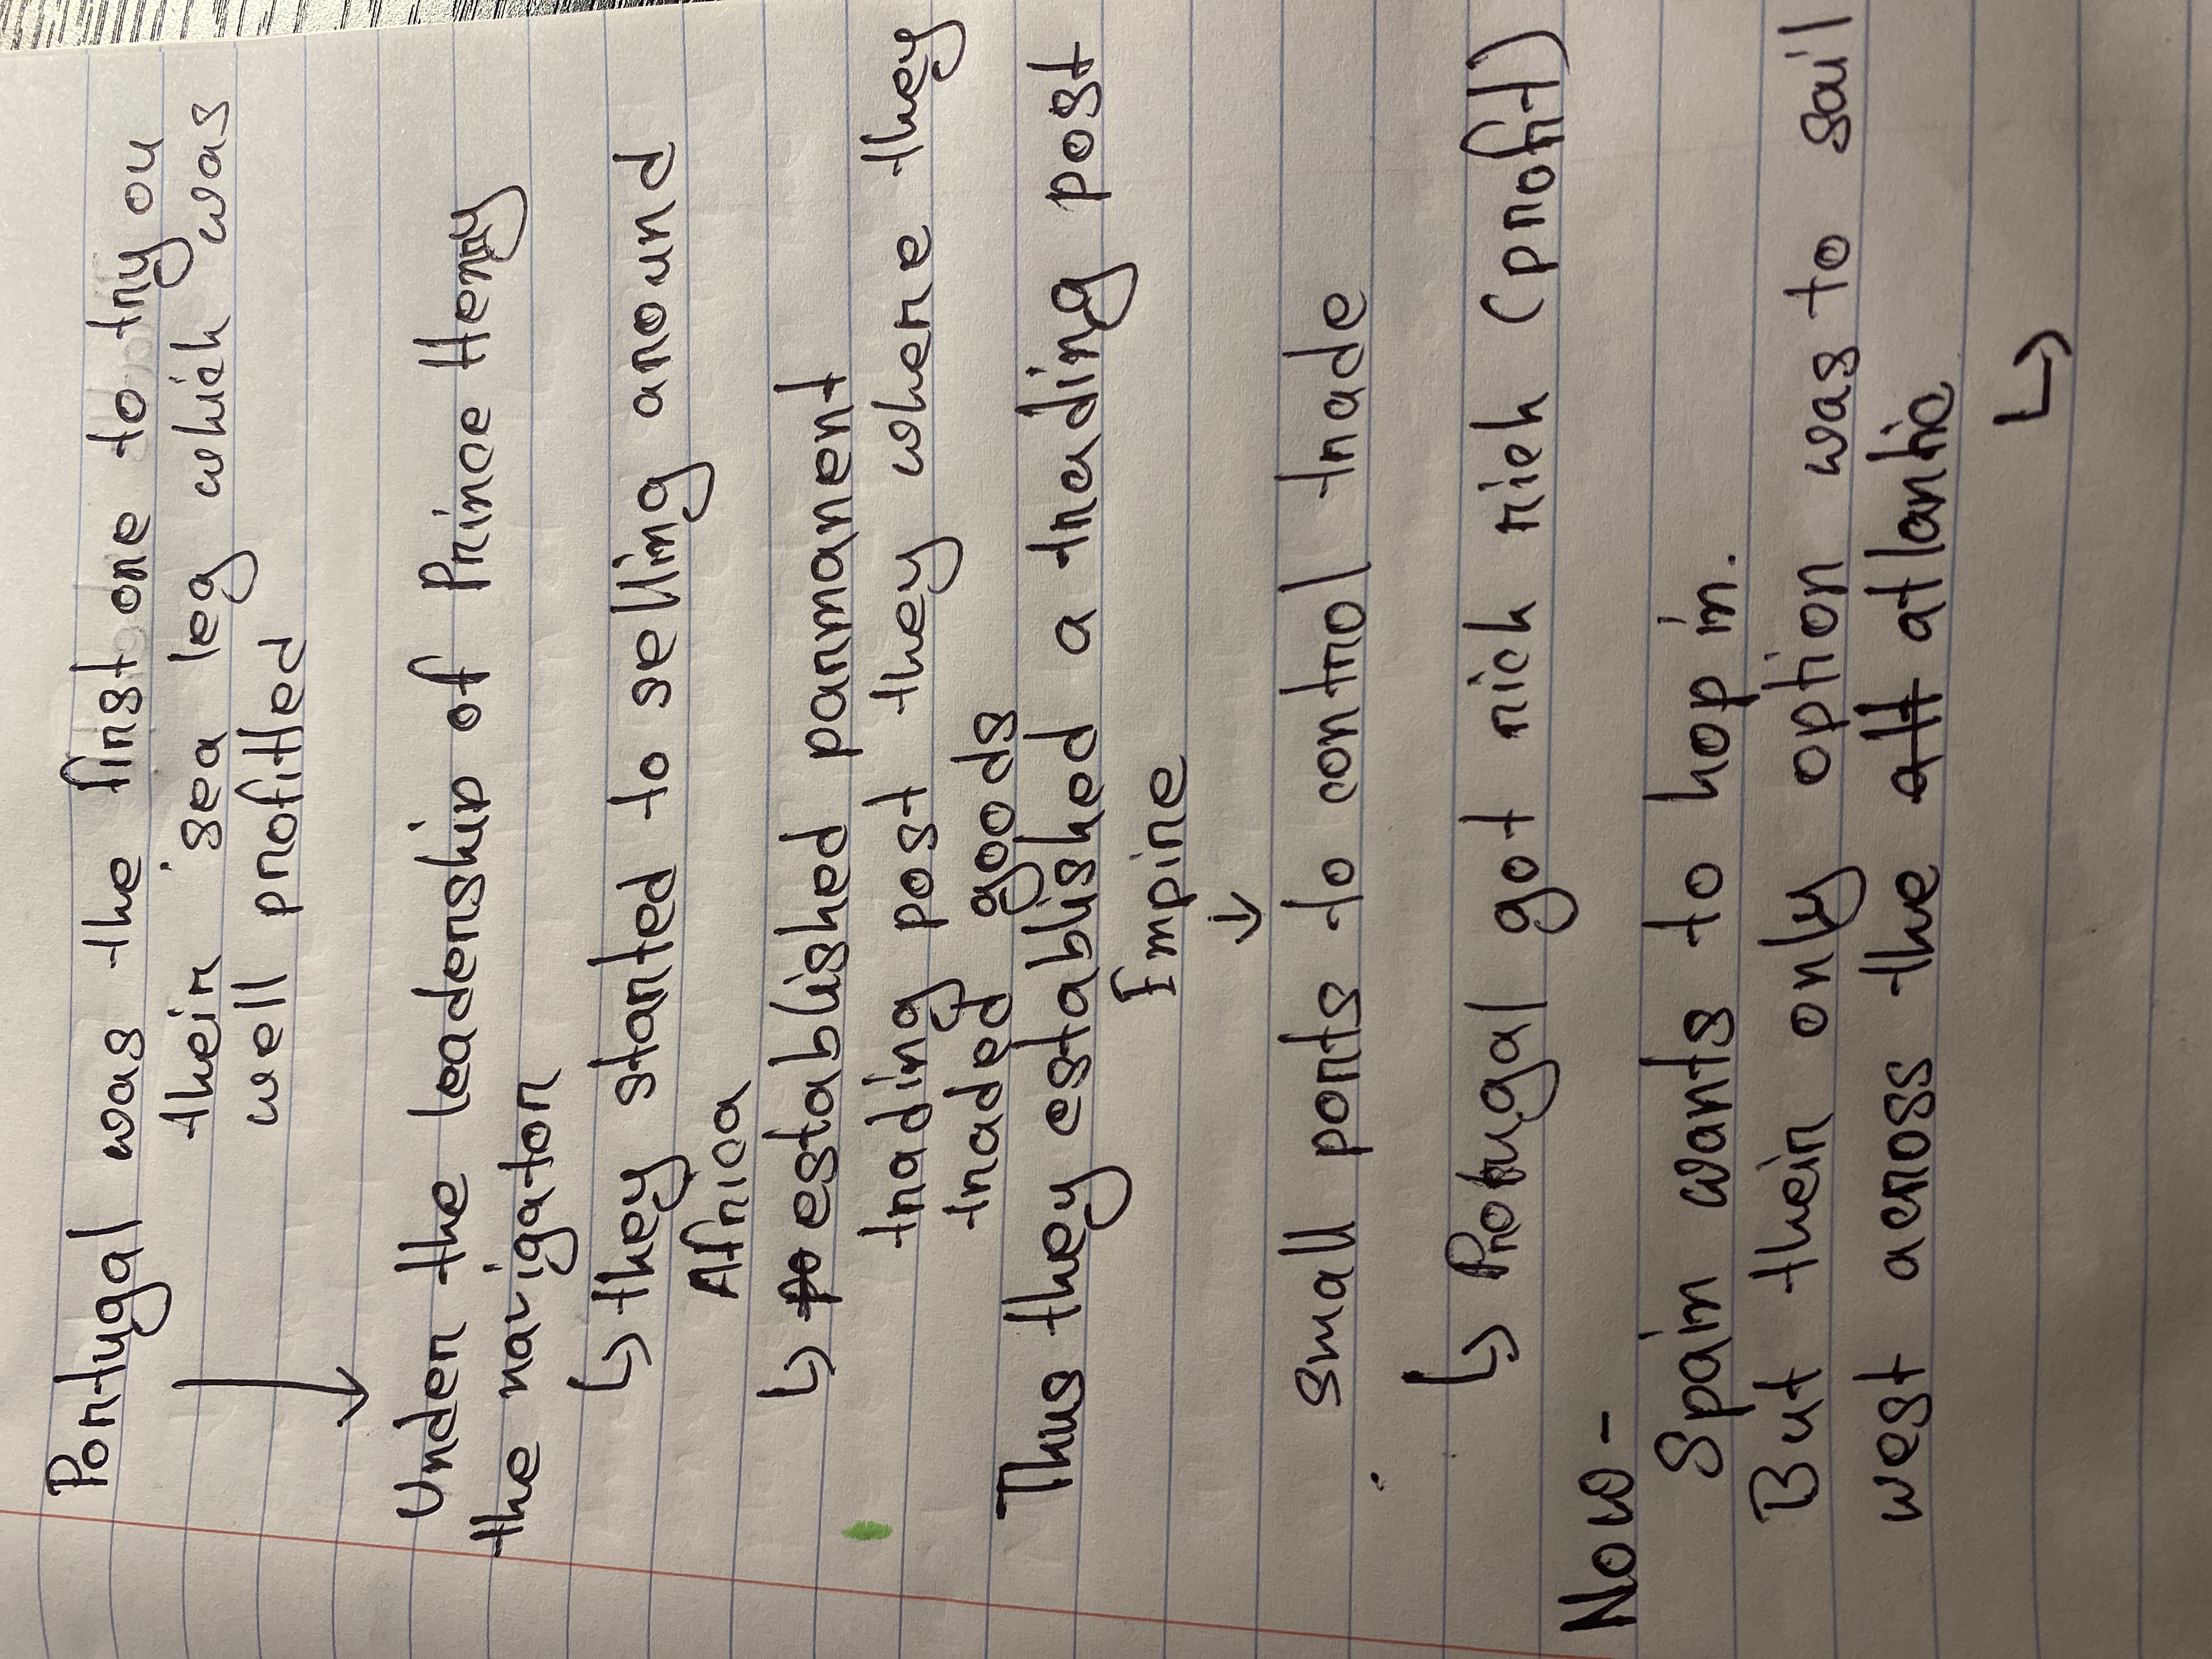 Portugal was the first one to try ou
their sea leg which which was
well profitted
Under the leadership of Prince Henry
the navigator
↳ they started to selling around
Africa
↳ to established parmanent
trading post they where they
traded goods
Thus they established a treading post
Impire
↓
small ports to control trade
↳ Protugal got rich rich (profit)
Now -
Spain wants to hop in.
But their only option was to sail
west across the att atlantic
↳